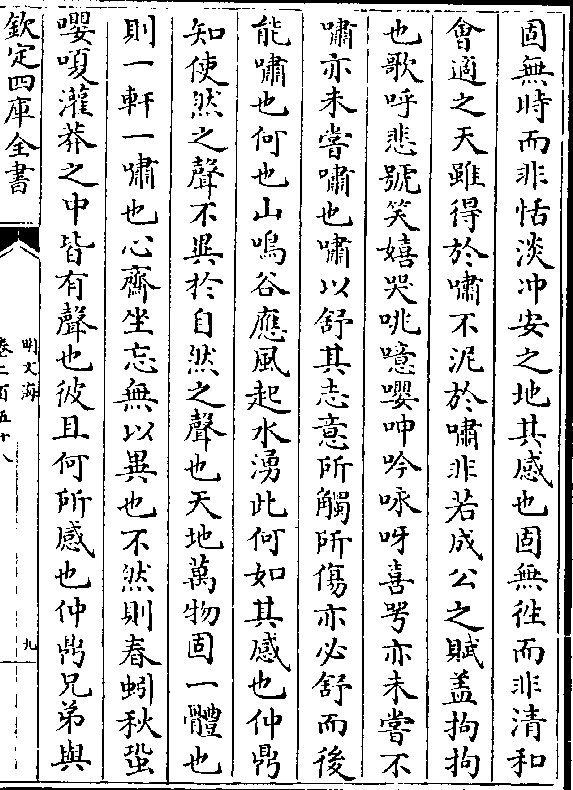 固無時而非恬淡冲安之地其感也固無徃而非清和
㑹適之天雖得於嘯不泥於嘯非若成公之賦盖拘拘
也歌呼悲號笑嬉哭咷噫嚶呻吟咏呀喜咢亦未嘗不
嘯亦未嘗嘯也嘯以舒其志意所觸所傷亦必舒而後
能嘯也何也山鳴谷應風起水湧此何如其感也仲鼎
知使然之聲不異於自然之聲也天地萬物固一體也
則一軒一嘯也心齋坐忘無以異也不然則春蚓秋蛩
嚶嗄灌莽之中皆有聲也彼且何所感也仲鼎兄弟與
欽定四庫全書
明文海
卷二百五十八
九